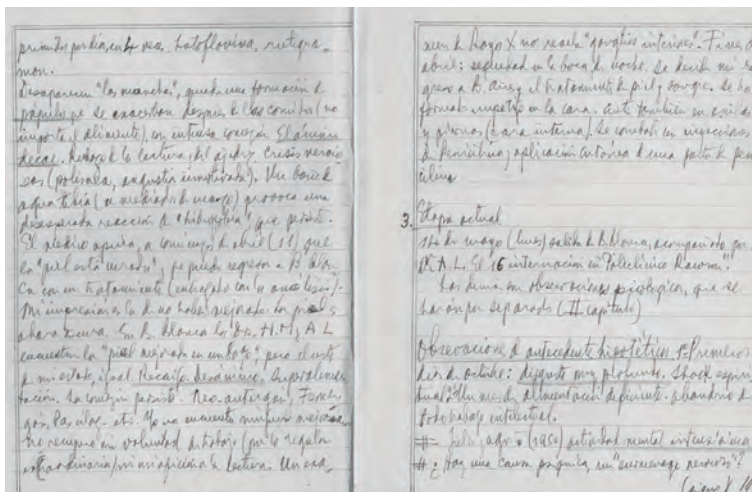 primidos por día, en dos veces. Lactoflavina, rutigra-
mon.
Desaparecen "las manchas", queda una formación de
pápulas que se exacerban después de las comidas (no
importa el alimento), con intensa comezón. El ánimo
decae. Rechazo de la lectura, del ajedrez. Crisis nervio
sas (polémica, angustia inmotivada). Un baño de
agua tibia (a mediados de marzo) provoca una
desesperada reacción de "hidrofobia" que persiste.
El médico opina, a comienzos de abril (11) que
la "piel está curada", que puedo regresar a B. Blan-
ca con un tratamiento
Mi impresión es la de no haber mejorado. La piel
ahora. En B. Blanca los Drs. H. M. y A. L
encuentran la "piel mejorada en un 60%", pero el resto
de mi estado, igual. Recaída. Desánimo.
tación. La comezón persiste. Neo-antergan, Fener-
gan, etc. Yo no encuentro ninguna mejoría.
No recupero mi voluntad de trabajo (que es regular
extraordinaria) ni mi afición a la lectura. Un exa-
men de Rayos X no revela "ganglios interiores". Fines de
abril: sequedad en la boca de noche. Se decide mi re
greso a B. Aires y el tratamiento de piel y sangre. Se ha
formado en la cara. también en axila
y piernas (cara interna). Se combate con inyecciones
de Penicilina, aplicación cutánea de una pasta de peni
cilina
3. Etapa actual
de mayo (lunes) salida de B. Blanca, acompañado por
Dr. A. L. El 16 internación en "Policlínico Rawson".
Los demás son observaciones psicológicas, que se
harán por separado (II capítulo)
Observaciones de antecedente hipotético. 1º Primeros
días de octubre: disgusto muy profundo. Shock espiri
tual? Un mes de alimentación deficiente. Abandono de
todo trabajo intelectual.
# Julio, ago. (1950) actividad mental intensísima
# ¿Hay una causa psíquica, un "surmenage nervioso"?
(sigue